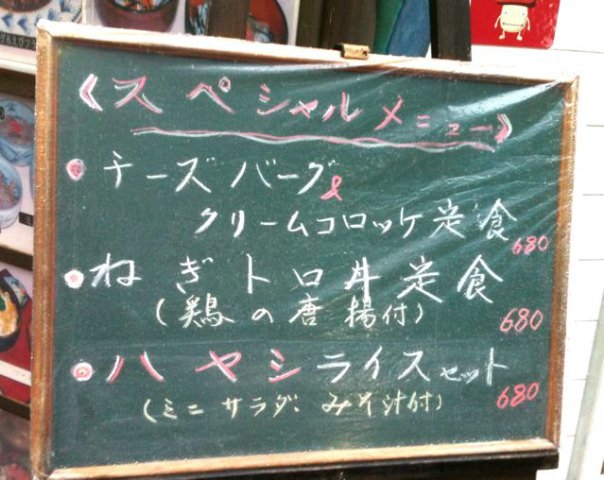 《スペシャルメニュー》
・チーズバーグ&
クリームコロッケ定食 680
・ねぎトロ丼定食
(鶏の唐揚付) 680
・ハヤシライスセット
(ミニサラダ、みそ汁付) 680